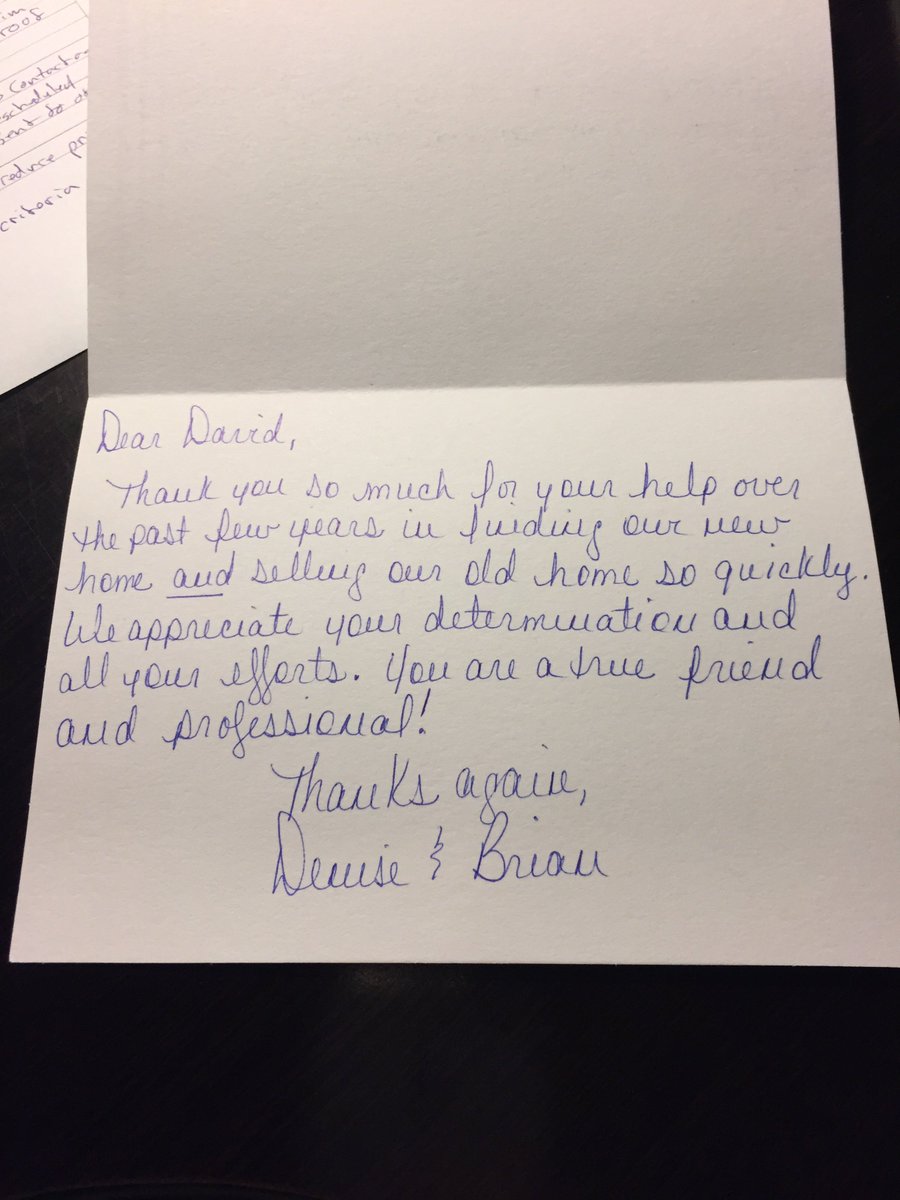 roof
contact
scheduled
sent to
reduce
criteria
Dear David,
Thank you so much for your help over
the past few years in finding our new
home and selling our old home so quickly.
We appreciate your determination and
all your efforts. You are a true friend
and professional!
Thanks again,
Denise & Brian